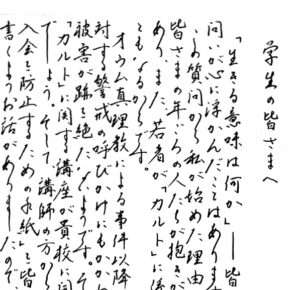 学生の皆さまへ
「生きる意味は何か」――皆
問いが心に浮かんだことはありま
この質問から私が始めた理由
皆さまの年ごろの人たちが抱き
あります。若者が「カルト」に係
ともなるからです。
オウム真理教による事件以降
対する警戒の呼びかけにもかかわ
被害が跡を絶たないようです。そ
「カルト」に関する講座が貴校に
でしょう。そして、講師の方から
入会を防止するための手紙」を皆
書くようお話がありましたので